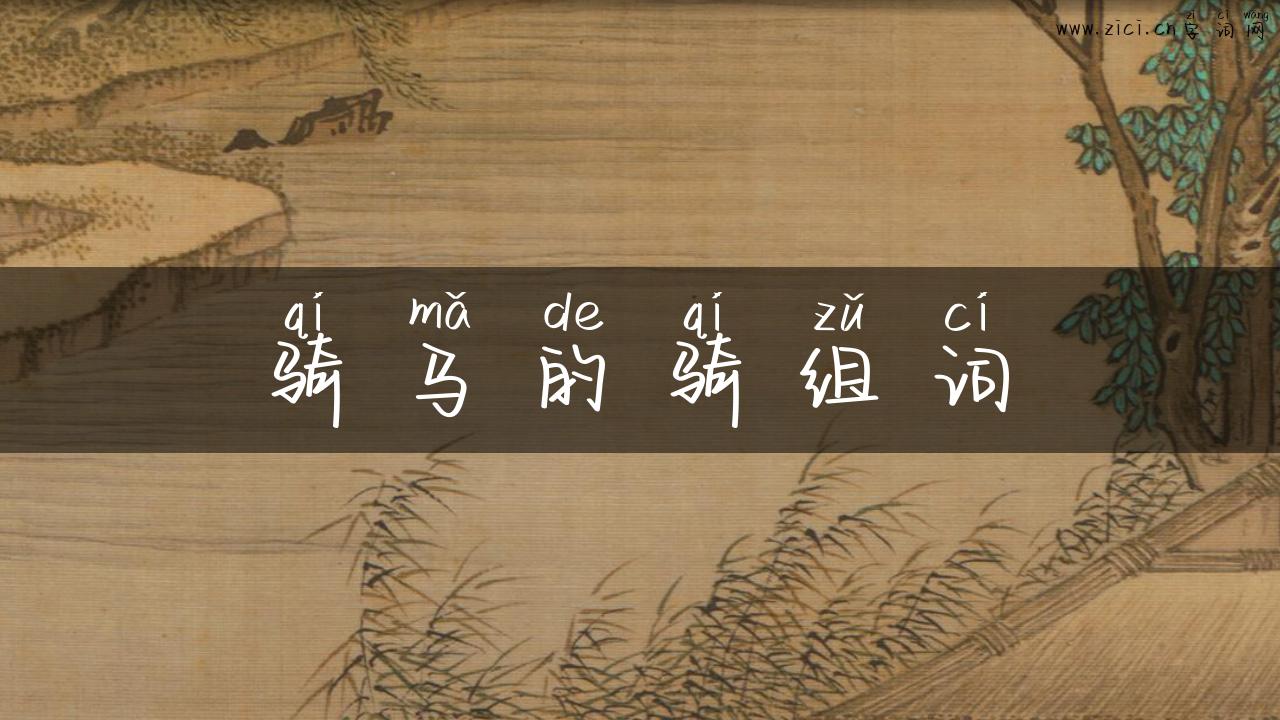 zì cí wǎng
www.zici.cn字词网
qí mǎ de qí zǔ cí
骑马的骑组词